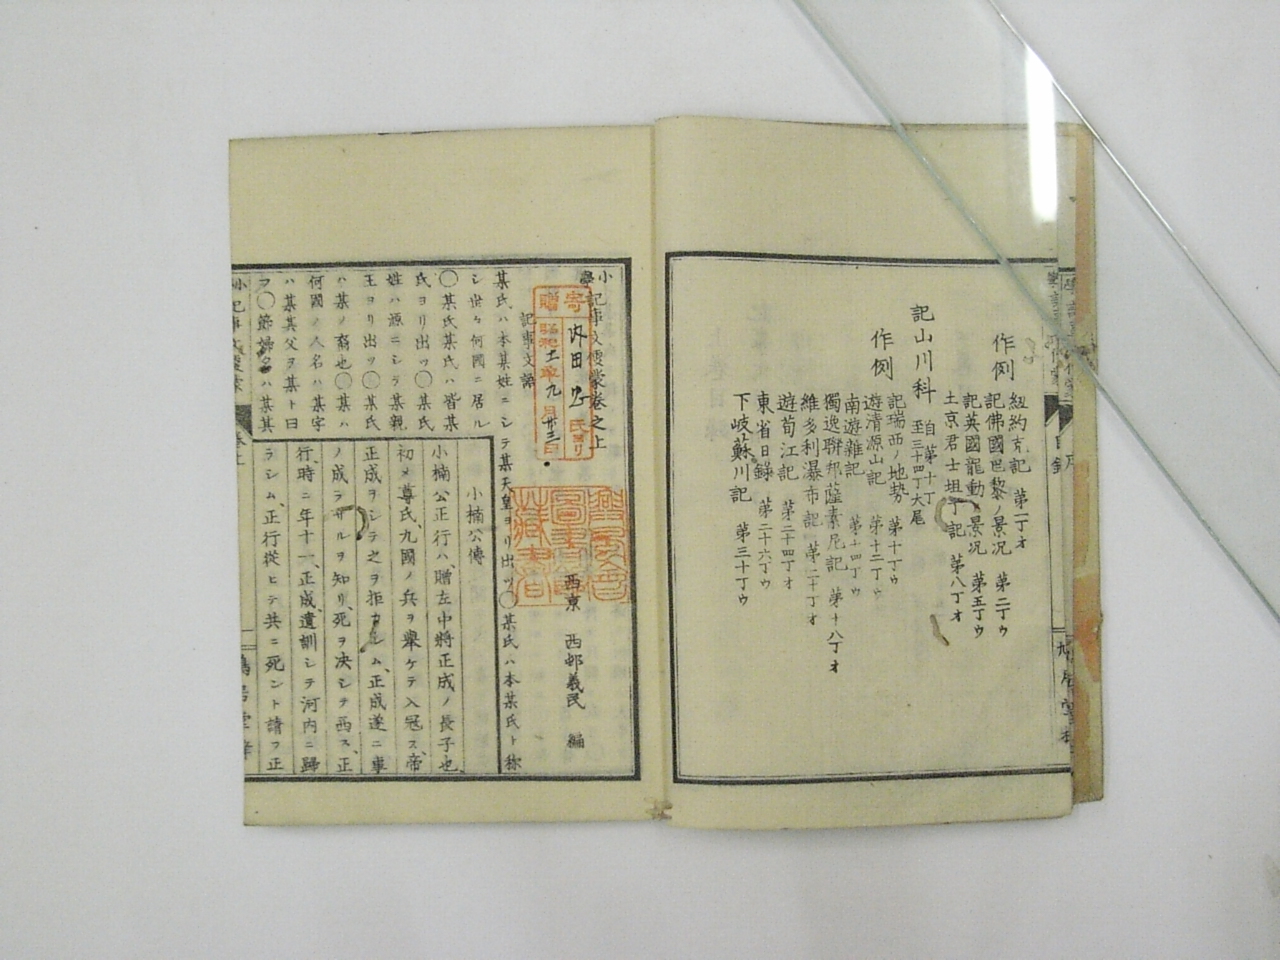 作例
紐約克記 第一丁オ
記佛國巴黎ノ景況 第二丁ウ
記英國龍動ノ景況 第五丁ウ
土京君士坦丁記 第八丁オ
記山川科 自第十丁 至三十四丁大尾
作例
記瑞西ノ地勢 第十丁ウ
遊清源山記 第十二丁ウ
南遊雜記 第十四丁ウ
獨逸聯邦薩索尼記 第十八丁オ
維多利瀑布記 第二十丁オ
遊荀江記 第二十四丁オ
東省日錄 第二十六丁ウ
下岐蘇川記 第三十丁ウ
小學記事文便蒙卷之上
西京 西邨義民 編
寄贈
内田 氏ヨリ
昭和十一年九月廿三日
記事文語
某氏ハ本某姓ニシテ某天皇ヨリ出ツ〇某氏ハ本某氏ト称
シ世々何國ニ居ル
〇某氏某氏ハ皆某
氏ヨリ出ツ〇某氏
姓ハ源ニシテ某親
王ヨリ出ツ〇某氏
ハ某ノ裔也〇某氏
何國ノ人名ハ某字
ハ某其父ヲ某ト曰
フ〇節婦名ハ某其
小楠公傳
小楠公正行ハ、贈左中將正成ノ長子也、
初メ尊氏、九國ノ兵ヲ舉ケテ入冠ス、帝
正成ヲシテ之ヲ拒カシム、正成遂ニ事
ノ成ラサルヲ知リ、死ヲ决シテ西ス、正
行時ニ年十一、正成遺訓シテ河内ニ歸
ラシム、正行從ヒテ共ニ死ント請フ正